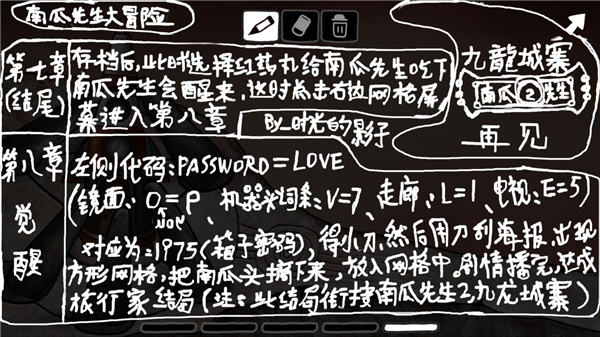 南瓜先生大冒险
第七章
(结尾)
存档后,此时选择红药丸给南瓜先生吃下
南瓜先生会醒来,这时点击右边网格屏
幕进入第八章
By_时光的影子
九龍城寨
南瓜②先生
再见
第八章
觉
醒
左侧代码:PASSWORD=LOVE
(镜面、O=9、机器头词条:V=7、走廊、L=1、电视:E=5)
对应为:1975(箱子密码),得小刀,然后用刀刮海报,出现
方形网格,把南瓜头摘下来,放入网格中。剧情播完,达成
旅行家结局(注:此结局衔接南瓜先生2九龙城寨)